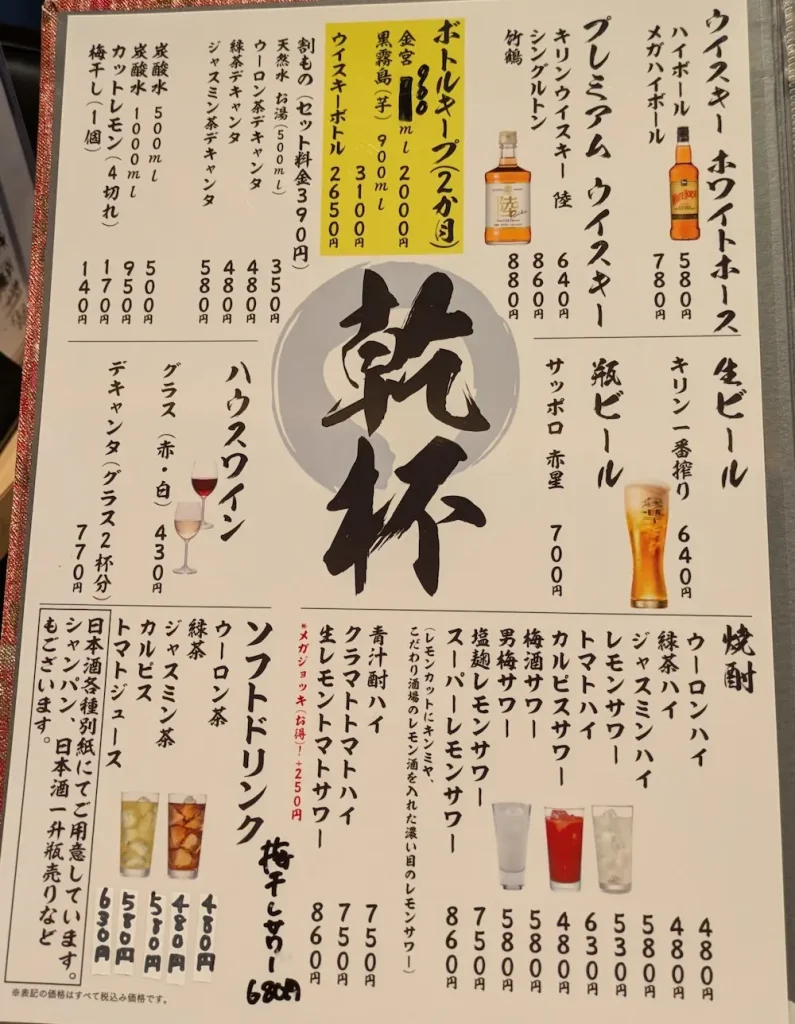 ウイスキー ホワイトホース
ハイボール 580円
メガハイボール 780円
プレミアム ウイスキー
キリンウイスキー 陸 640円
シングルトン 860円
竹鶴 880円
ボトルキープ(2か月)
金宮 900ml 2000円
黒霧島(芋) 900ml 3100円
ウイスキーボトル 2650円
割もの(セット料金390円)
天然水 お湯(500ml) 350円
ウーロン茶デキャンタ 480円
緑茶デキャンタ 480円
ジャスミン茶デキャンタ 580円
炭酸水 500ml 500円
炭酸水 1000ml 950円
カットレモン(4切れ) 170円
梅干し(1個) 140円
乾杯
生ビール
キリン一番搾り 640円
瓶ビール
サッポロ 赤星 700円
ハウスワイン
グラス(赤・白) 430円
デキャンタ(グラス2杯分) 770円
焼酎
ウーロンハイ 480円
緑茶ハイ 480円
ジャスミンハイ 580円
レモンサワー 530円
トマトハイ 630円
カルピスサワー 480円
梅酒サワー 580円
男梅サワー 580円
塩麹レモンサワー 750円
スーパーレモンサワー 860円
(レモンカットにキンミヤ、
こだわり酒場のレモン酒を入れた濃い目のレモンサワー)
青汁酎ハイ 750円
クラマトトマトハイ 750円
生レモントマトサワー 860円
※メガジョッキ(お得)!+250円
梅干しサワー 680円
ソフトドリンク
ウーロン茶 480円
緑茶 480円
ジャスミン茶 580円
カルピス 580円
トマトジュース 630円
日本酒各種別紙にてご用意しています。
シャンパン、日本酒一升瓶売りなど
もございます。
※表記の価格はすべて税込み価格です。